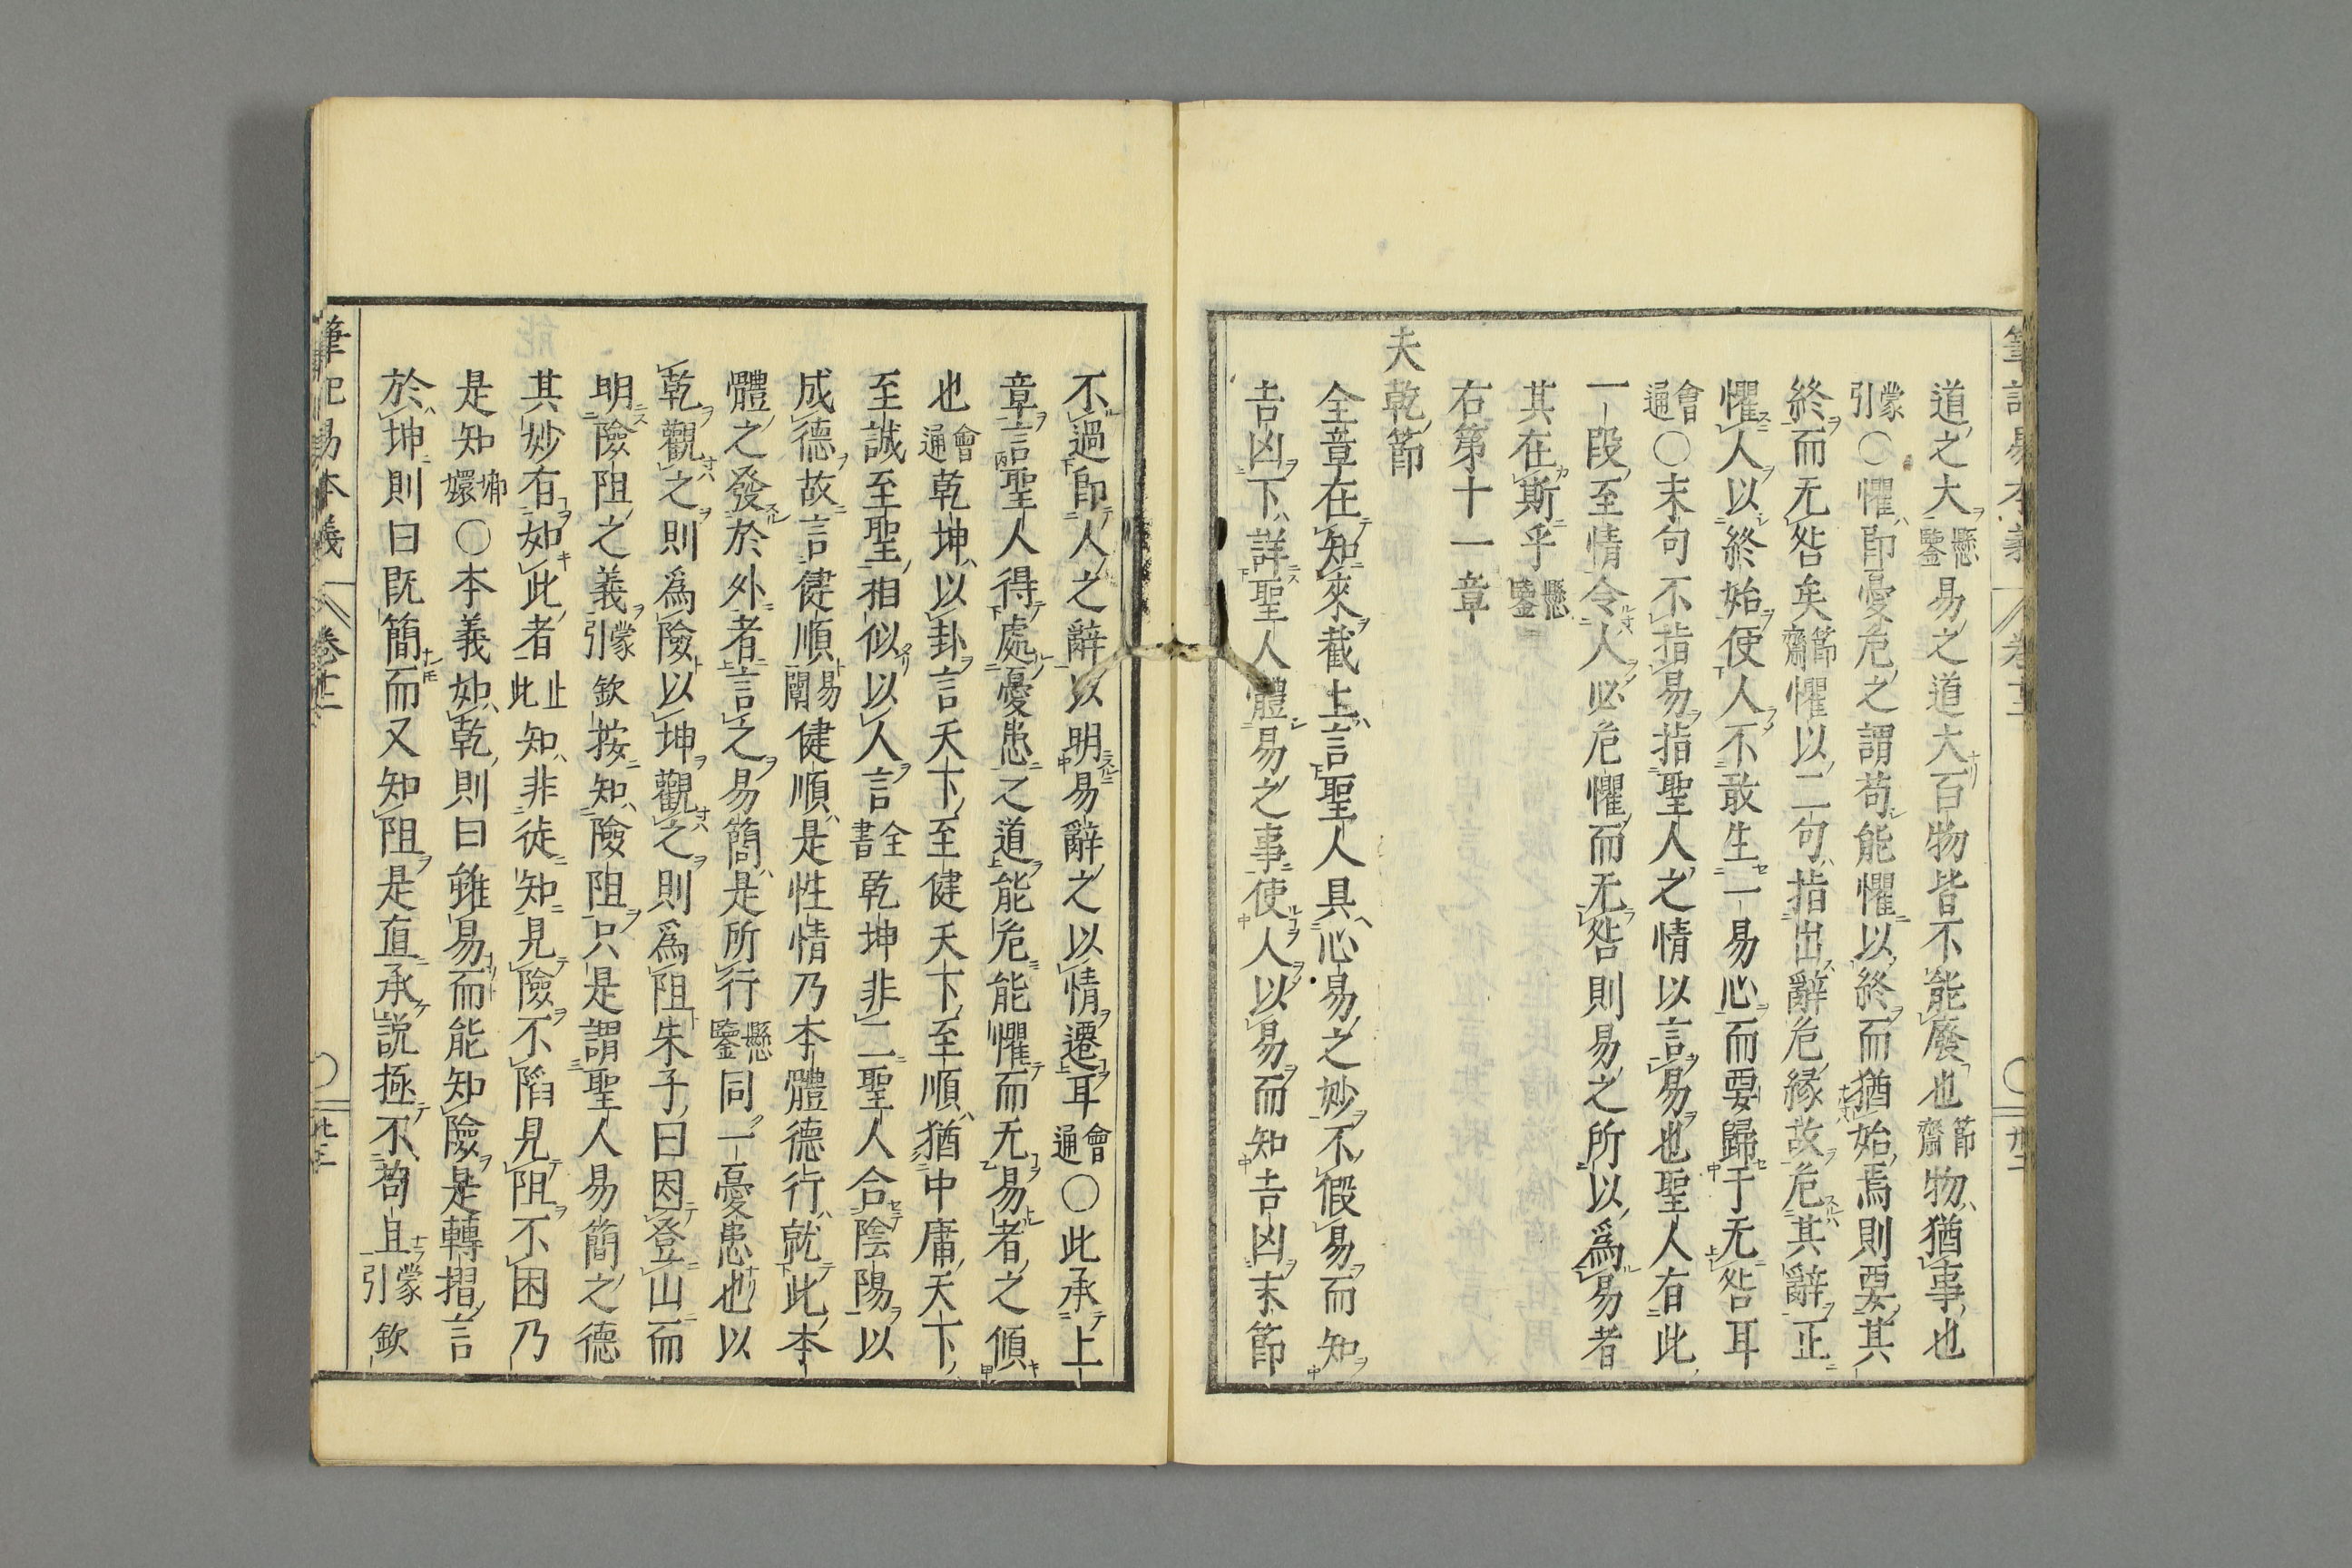 筆記易本義 卷十二 〇 廿二
道之大懸鑒易之道大百物皆不能廢也節齋物猶事也
蒙引〇懼即憂危之謂苟能懼以終而猶始焉則要其
終而无咎矣節齋懼以二句指出辭危緣故危其辭正
懼人以終始使人不敢生一易心而要歸于无咎耳
會通〇末句不指易指聖人之情以言易也聖人有此
一段至情令人必危懼而无咎則易之所以爲易者
其在斯乎懸鑒
右第十一章
夫乾節
全章在知來截上言聖人具心易之妙不假易而知
吉凶下詳聖人體易之事使人以易而知吉凶末節
不過即人之辭以明易辭之以情遷耳會通〇此承上
章言聖人得處憂患之道能危能懼而无易者之傾
也會通乾坤以卦言天下至健天下至順猶中庸天下
至誠至聖相似以人言全書乾坤非二聖人合陰陽以
成德故言健順易闡健順是性情乃本體德行就此本
體之發於外者言之易簡是所行懸鑒同一憂患也以
乾觀之則爲險以坤觀之則爲阻朱子曰因登山而
明險阻之義蒙引欽按知險阻只是謂聖人易簡之德
其妙有如此者止此知非徒知見險不陷見阻不困乃
是知嫏嬛〇本義如乾則曰雖易而能知險是轉摺言
於坤則曰既簡而又知阻是直承説極不苟且蒙引欽
筆記易本義 卷十二 〇 廿三